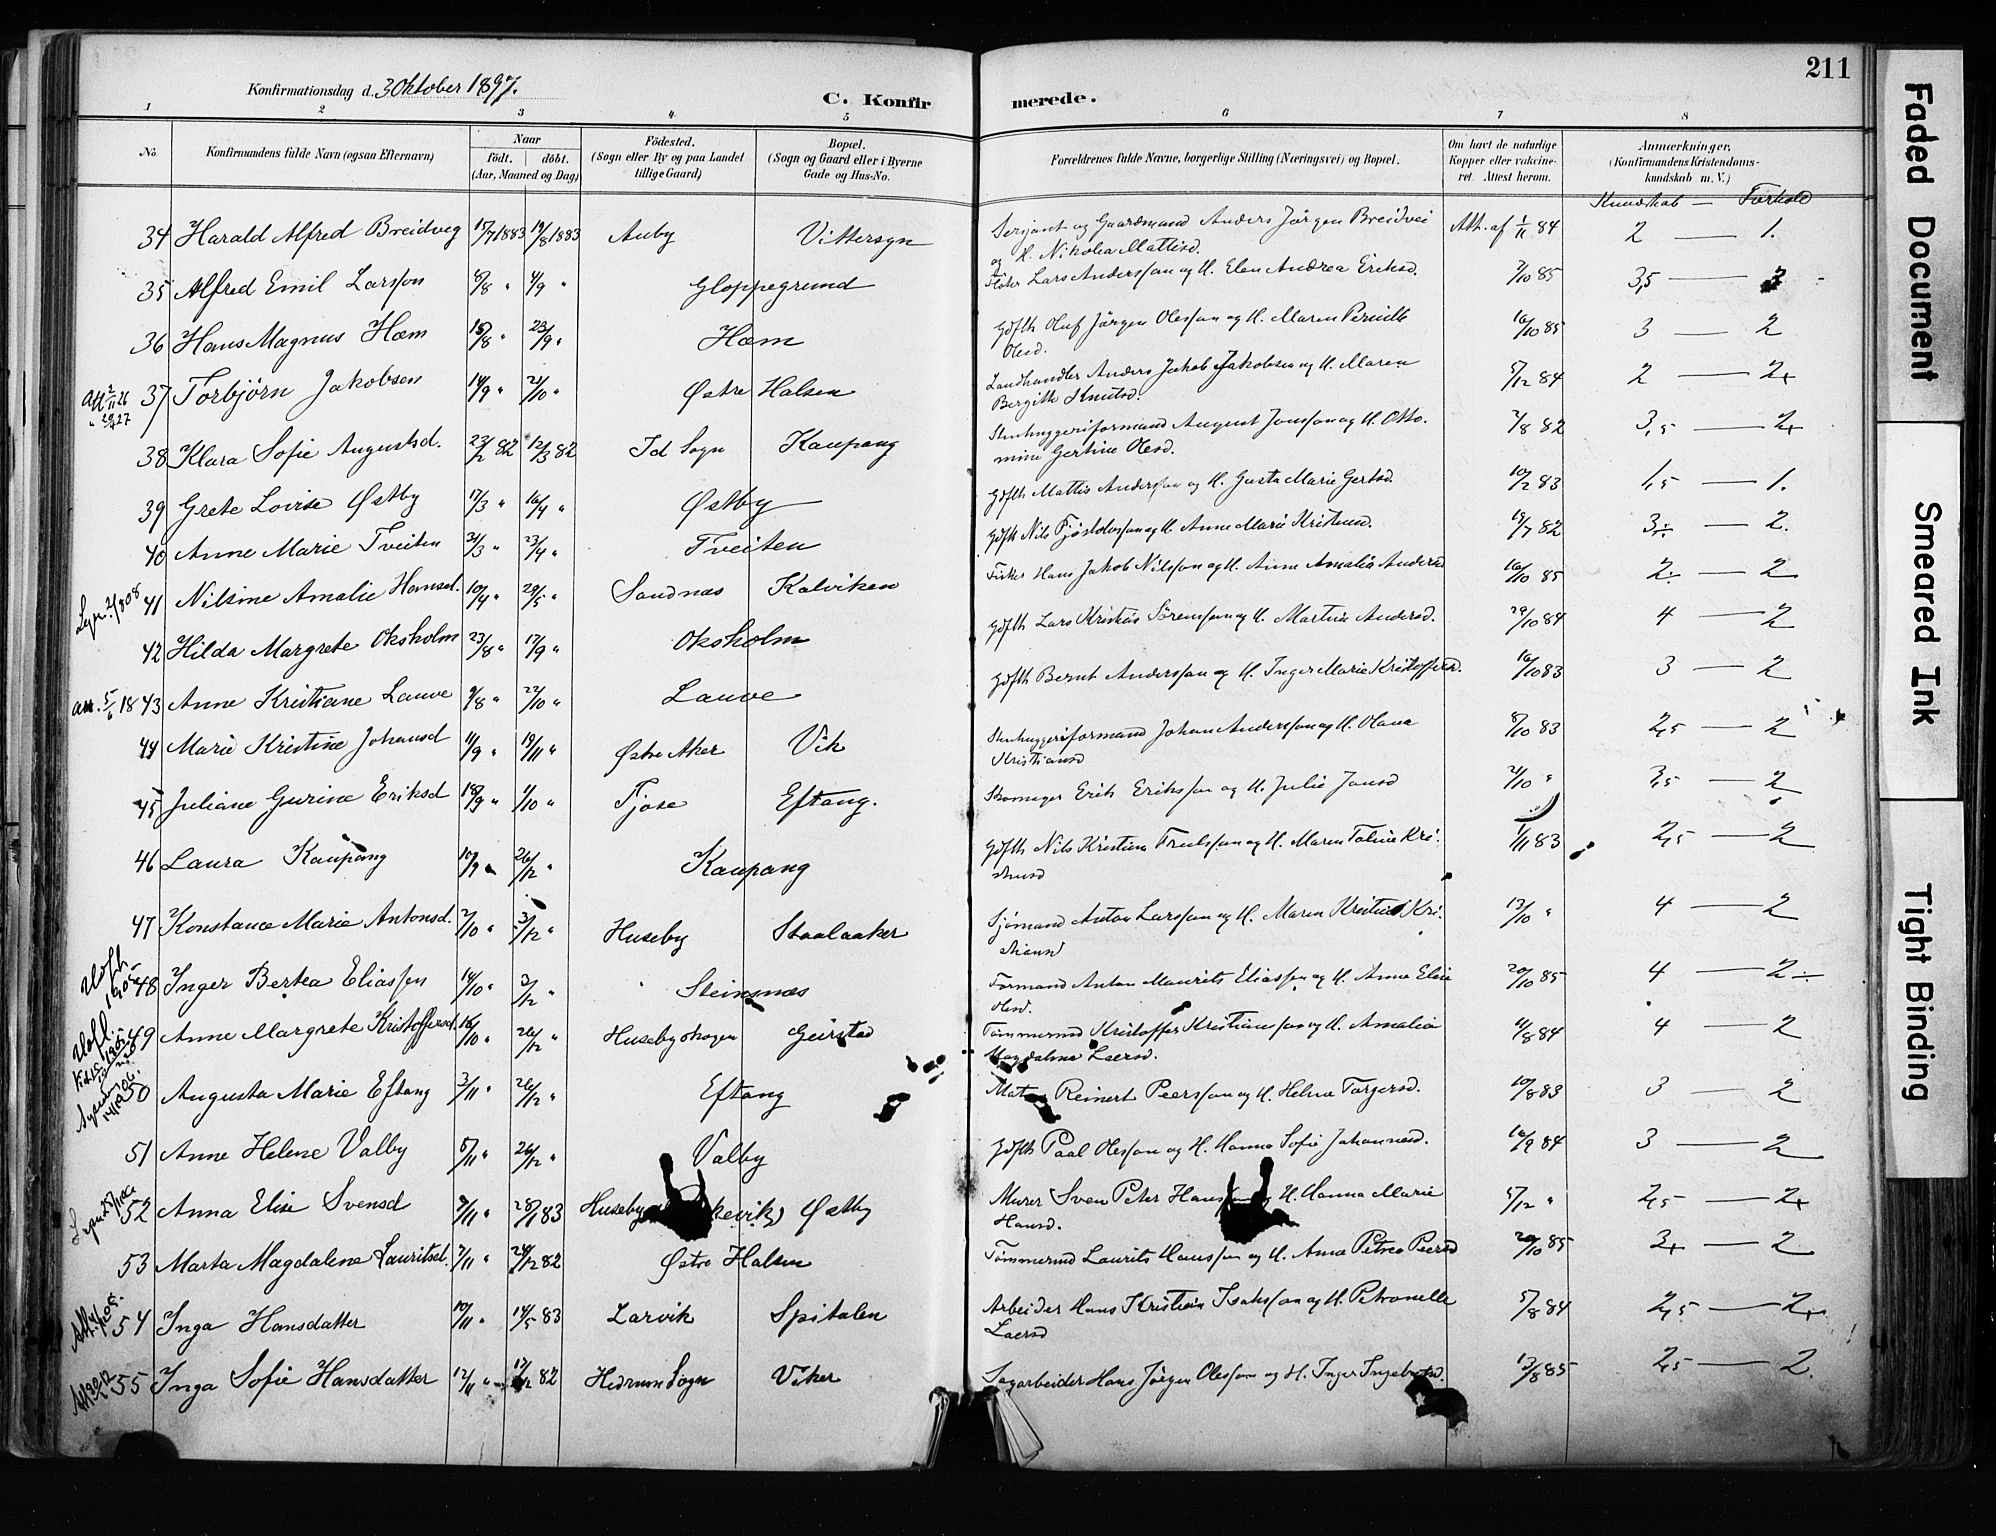 Konfirmationsdag d. 3 Oktober 1897.
C. Konfir merede.
211
1 2 3 4 5 6 7 8
No.
Konfirmandens fulde Navn (ogsaa Efternavn)
Naar
födt. döbt.
(Aar, Maaned og Dag)
Födested.
(Sogn eller By og paa Landet
tillige Gaard)
Bopæl.
(Sogn og Gaard eller i Byerne
Gade og Hus-No.
Forældrenes fulde Navne, borgerlige Stilling (Næringsvei) og Bopæl.
Om havt de naturlige
Kopper eller vakcine-
ret. Attest herom.
Anmærkninger,
(Konfirmandens Kristendoms-
kundskab m. V.)
Kundskab — Forhold
34 Harald Alfred Breidveg 17/7 1883 19/8 1883 Auby Vittersøn Serjant og Gaardmand Anders Jørgen Breidvei Att. af 1/11 84 2 — 1.
og H. Nikolea Mattisd.
35 Alfred Emil Larsson 8/8 " 4/9 " Gloppegrund Fløter Lars Anderssøn og H. Elen Andrea Eriksd. 7/10 85 3,5 — 3
36 Hans Magnus Ham 15/8 " 23/9 " Ham Gdfth Oluf Jørgen Olessøn og H. Maren Pernille 16/10 85 3 — 2
Olesd.
37 Torbjörn Jakobsen 14/9 " 21/10 " Østre Halsen Landhandler Anders Jakob Jakobsen og H. Maren 5/12 84 2 — 2+
Bergitte Knutsd.
38 Klara Sofie Augustsd. 23/2 82 12/3 82 Id Sogn Kaupang Stenhuggeriformand August Jonssøn og H. Otto- 7/8 82 3,5 — 2+
mine Gertine Olesd.
39 Grete Lovise Østby 17/3 " 16/4 " Østby Gdfth Mattis Anderssøn og H. Gusta Marie Gertsd. 10/2 83 1,5 — 1.
40 Anne Marie Tveiten 21/3 " 23/4 " Tveiten Gdfth Nils Fjøstolssøn og H. Anne Marie Kristensd. 19/7 82 3÷ — 2.
41 Nilsine Amalie Hansd. 10/4 " 29/5 " Sandnæs Kalviken Fisker Hans Jakob Nilssøn og H. Anne Amalia Andersd 16/10 85 2÷ — 2
42 Hilda Margrete Oksholm 23/8 " 17/9 " Oksholm Gdfth Lars Kristias Sørenssøn og H. Martine Andersd. 29/10 84 4 — 2
43 Anne Kristiane Lauve 9/8 " 22/10 " Lauve Gdfth Bernt Anderssøn og H. Inger Marie Kristoffersd. 16/10 83 3 — 2
44 Marie Kristine Johansd 11/9 " 19/11 " Østre Aker Vik Stenhuggeriformand Johan Anderssøn og H. Olava 8/10 83 2,5 — 2
Kristiansd
45 Juliane Gurine Eriksd 18/9 " 1/10 " Tjøse Eftang. Skomager Erik Erikssøn og H. Julie Jansd 2/10 " 3,5 — 2
46 Laura Kaupang 10/9 " 26/12 " Kaupang Gdfth Nils Kristian Trulssøn og H. Maren Taline Kri- 1/11 83 2,5 — 2
stensd
47 Konstance Marie Antonsd. 2/10 " 3/12 " Huseby Staalaaker Sjømand Anton Larssøn og H. Maren Kristine Kri- 13/10 " 4 — 2
stiansd
48 Inger Bertea Eliassen 14/10 " 3/12 " Steinsnæs Formand Anton Maurits Eliassøn og H. Anne Elise 20/10 85 4 — 2÷
Olesd.
49 Anne Margrete Kristoffersd. 16/10 " 26/12 " Husebyskogen Geirstad Tømmermd Kristoffer Kristianssøn og H. Amalia 4/8 84 4 — 2
Magdalena Laersd.
50 Augusta Marie Eftang 3/11 " 26/12 " Eftang Reinert Peerssøn og H. Helene Torgersd. 10/8 83 3 — 2
51 Anne Helene Valby 5/11 " 26/12 " Valby Gdfth Paal Olessøn og H. Hanna Sofie Johannesd. 16/9 84 3 — 2
52 Anna Elise Svensd 7/11 " 28/1 83 Huseby Østby Murer Sven Peter Hanssøn og H. Hanna Marie 5/12 " 2,5 — 2+
Hansd.
53 Marta Magdalene Lauritsd. 7/11 " 24/12 82 Østre Halsen Tømmermd Laurits Hanssøn og H. Anne Petrea Peersd 20/10 85 3+ — 2
54 Inga Hansdatter 10/11 " 14/5 83 Larvik Spitalen Arbeider Hans Kristian Isakssøn og H. Petronelle 5/8 84 2,5 — 2+
Laersd
55 Inga Sofie Hansdatter 12/11 " 17/12 82 Hedrum Sogn Viker Sagarbeider Hans Jörgen Olessøn og H. Inger Ingebretsd. 13/8 85 2,5 — 2.
Faded Document
Smeared Ink
Tight Binding